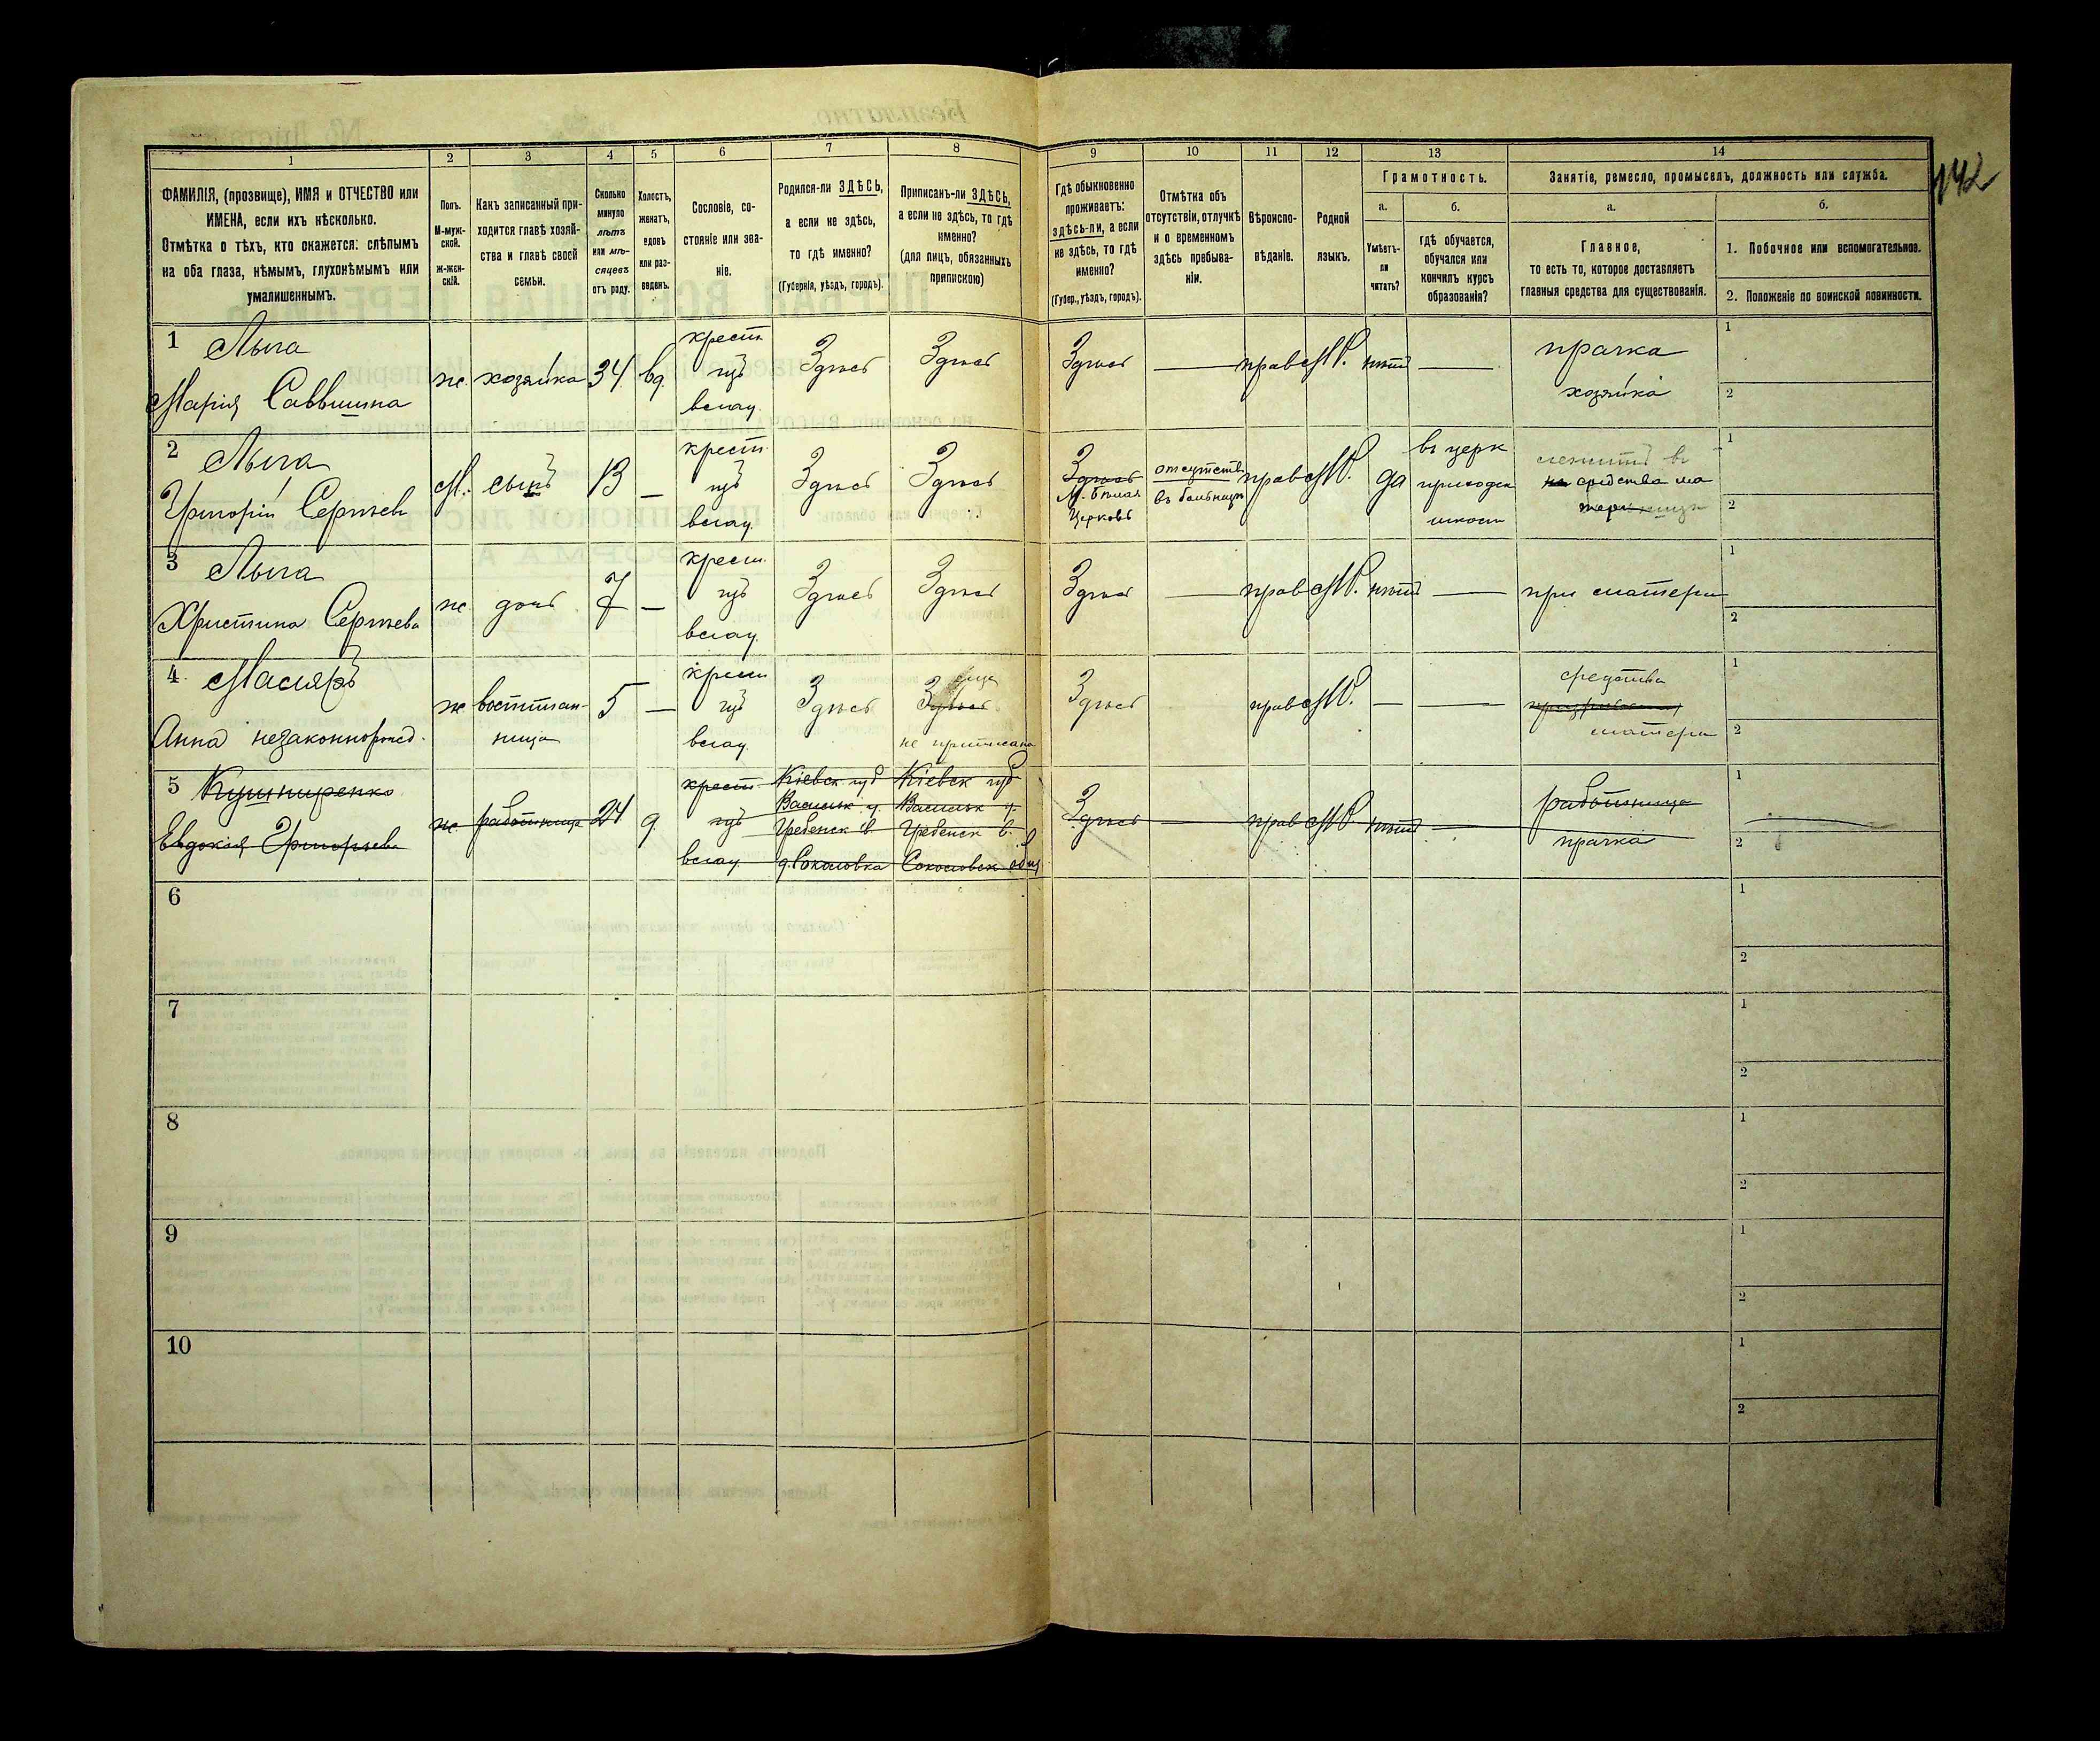 142
1 2 3 4 5 6 7 8 9 10 11 12 13 14
ФАМИЛІЯ, (прозвище), ИМЯ и ОТЧЕСТВО или
ИМЕНА, если ихъ нѣсколько.
Отмѣтка о тѣхъ, кто окажется: слѣпымъ
на оба глаза, нѣмымъ, глухонѣмымъ или
умалишеннымъ.
Полъ.
М-муж-
ской.
ж-жен-
скій.
Какъ записанный при-
ходится главѣ хозяй-
ства и главѣ своей
семьи.
Сколько
минуло
лѣтъ
или мѣ-
сяцевъ
отъ роду.
Холостъ,
женатъ,
вдовъ
или раз-
веденъ.
Сословіе, со-
стояніе или зва-
ніе.
Родился-ли ЗДѢСЬ,
а если не здѣсь,
то гдѣ именно?
(Губернія, уѣздъ, городъ).
Приписанъ-ли ЗДѢСЬ,
а если не здѣсь, то гдѣ
именно?
(для лицъ, обязанныхъ
припискою)
Гдѣ обыкновенно
проживаетъ:
здѣсь-ли, а если
не здѣсь, то гдѣ
именно?
(Губер., уѣздъ, городъ).
Отмѣтка объ
отсутствіи, отлучкѣ
и о временномъ
здѣсь пребыва-
ніи.
Вѣроиспо-
вѣданіе.
Родной
языкъ.
Грамотность.
а.
Умѣетъ-
ли
читать?
б.
гдѣ обучается,
обучался или
кончилъ курсъ
образованія?
Занятіе, ремесло, промыселъ, должность или служба.
а.
Главное,
то есть то, которое доставляетъ
главныя средства для существованія.
б.
1. Побочное или вспомогательное.
2. Положеніе по воинской повинности.
1 Лыга
Марія Саввишна
ж.
хозяйка
34
вд.
крест.
изъ
влад.
Здѣсь
Здѣсь
Здѣсь
—
прав
М.
нѣтъ
—
прачка
хозяйка
1
2
2 Лыга
Григорій Сергѣев
М.
сынъ
13
—
крест.
изъ
влад.
Здѣсь
Здѣсь
Здѣсь
М. Бѣлая
Церковь
отсутств.
въ больницѣ
прав
М.
да
въ церк
приходск
школѣ
средства ма
1
2
3 Лыга
Христина Сергѣева
ж.
дочь
7
—
крест.
изъ
влад.
Здѣсь
Здѣсь
Здѣсь
—
прав
М.
нѣтъ
—
при матери
1
2
4 Масляръ
Анна незаконнорожд.
ж
воспитан-
ница
5
—
крест
изъ
влад.
Здѣсь
Здѣсь
не приписана
Здѣсь
прав
М.
—
—
средства
матери
1
2
5 Кушниренко
Евдокія Григорьева
ж.
работница
24
д.
крест
изъ
влад.
Кіевск губ
Васильк у.
Гребенск в.
д. Соколовка
Кіевск губ
Васильк у.
Гребенск в.
Соколовск общ
Здѣсь
—
прав
М.
нѣтъ
—
работница
прачка
1
2
6
1
2
7
1
2
8
1
2
9
1
2
10
1
2